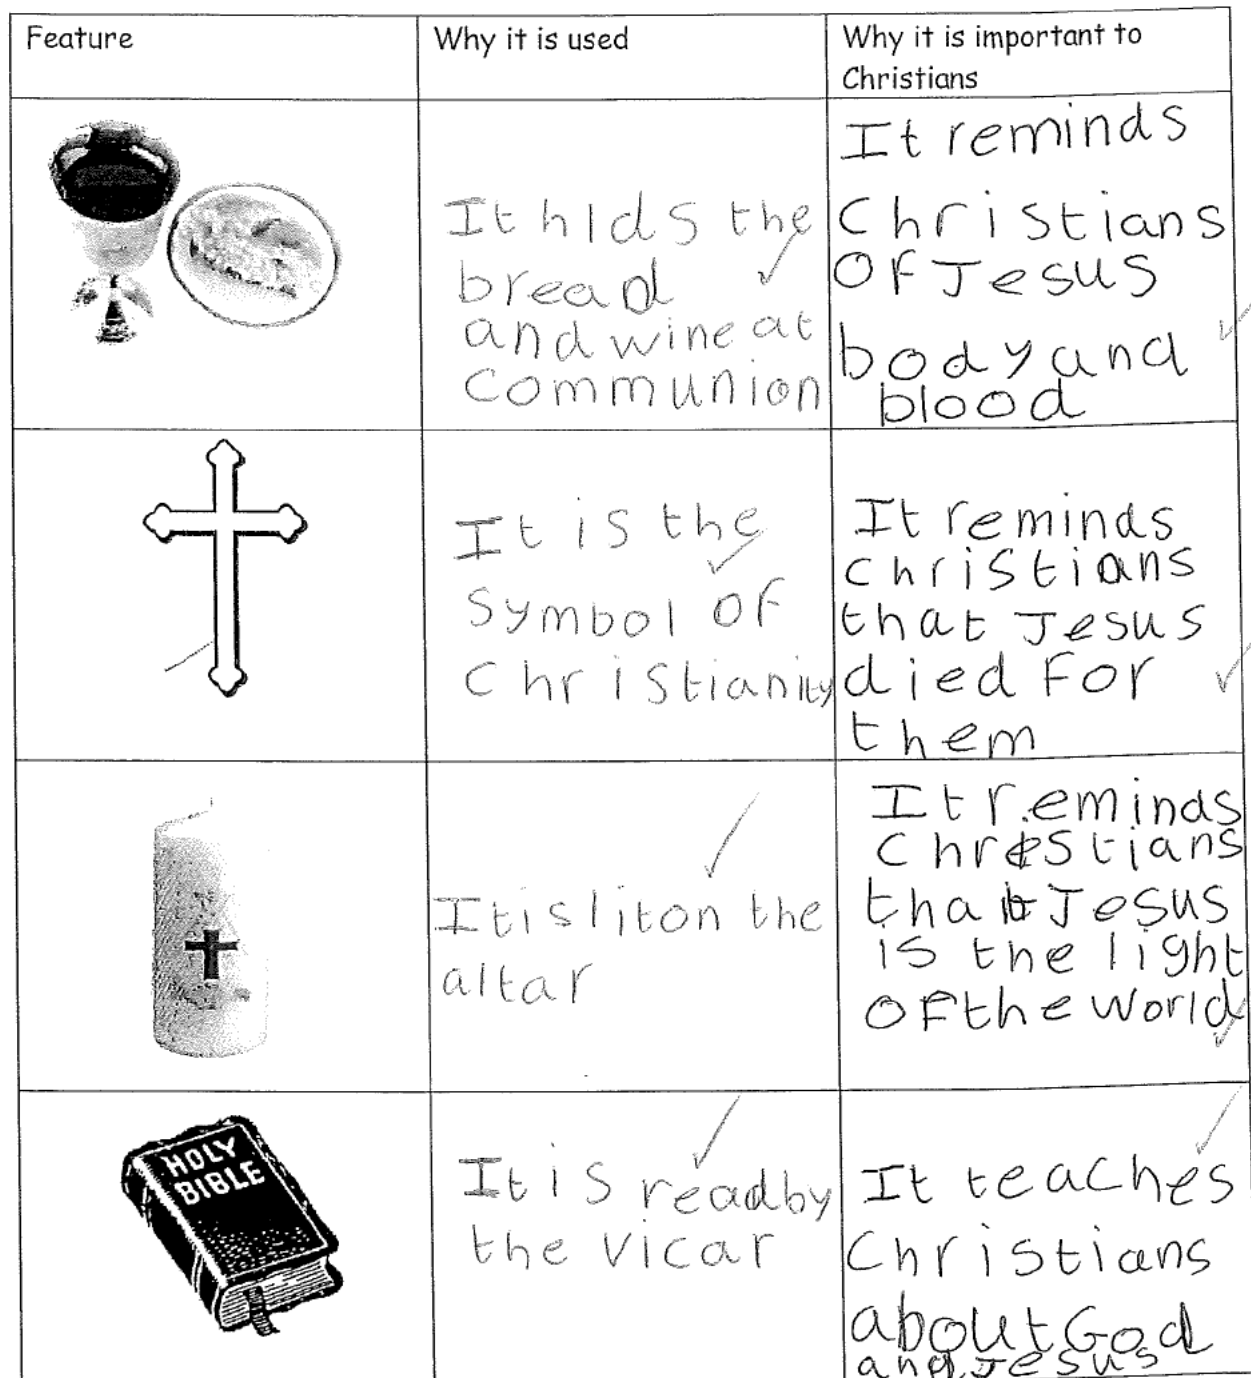 Feature
Why it is used
Why it is important to
Christians
It hlds the
bread
and wine at
communion
It reminds
Christians
of Jesus
body and
blood
It is the
symbol of
Christianity
It reminds
christians
that Jesus
died for
them
It is lit on the
altar
It reminds
christians
that Jesus
is the light
of the world
HOLY
BIBLE
It is read by
the vicar
It teaches
Christians
about God
and Jesus